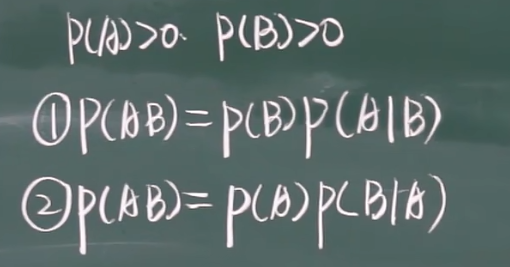 P(A)>0. P(B)>0
①P(AB)=P(B)P(A|B)
②P(AB)=P(A)P(B|A)